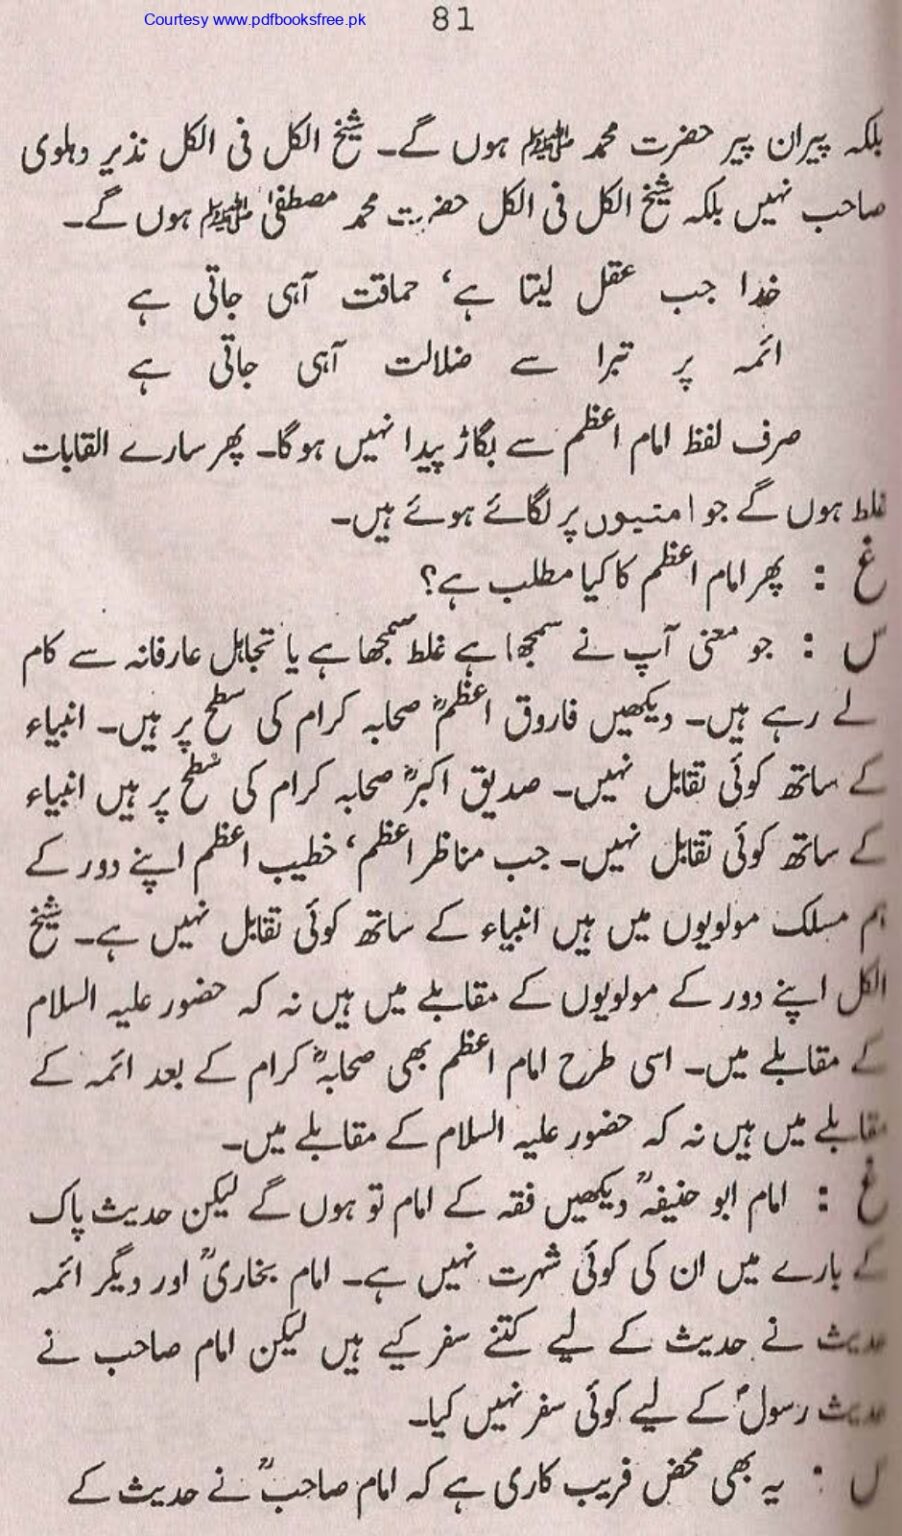 Courtesy www.pdfbooksfree.pk
81
بلکہ پیران پیر حضرت محمد ﷺ ہوں گے۔ شیخ الکل فی الکل نذیر دہلوی
صاحب نہیں بلکہ شیخ الکل فی الکل حضرت محمد مصطفیٰ ﷺ ہوں گے۔
خدا جب عقل لیتا ہے، حماقت آہی جاتی ہے
ائمہ پر تبرا سے ضلالت آہی جاتی ہے
صرف لفظ امام اعظم سے بگاڑ پیدا نہیں ہوگا۔ پھر سارے القابات
غلط ہوں گے جو امتیوں پر لگائے ہوئے ہیں۔
غ : پھر امام اعظم کا کیا مطلب ہے؟
س : جو معنی آپ نے سمجھا ہے غلط سمجھا ہے یا تجاہل عارفانہ سے کام
لے رہے ہیں۔ دیکھیں فاروق اعظمؓ صحابہ کرام کی سطح پر ہیں۔ انبیاء
کے ساتھ کوئی تقابل نہیں۔ صدیق اکبرؓ صحابہ کرام کی سطح پر ہیں انبیاء
کے ساتھ کوئی تقابل نہیں۔ جب مناظر اعظم، خطیب اعظم اپنے دور کے
ہم مسلک مولویوں میں ہیں انبیاء کے ساتھ کوئی تقابل نہیں ہے۔ شیخ
الکل اپنے دور کے مولویوں کے مقابلے میں ہیں نہ کہ حضور علیہ السلام
کے مقابلے میں۔ اسی طرح امام اعظم بھی صحابہؓ کرام کے بعد ائمہ کے
مقابلے میں ہیں نہ کہ حضور علیہ السلام کے مقابلے میں۔
غ : امام ابو حنیفہؒ دیکھیں فقہ کے امام تو ہوں گے لیکن حدیث پاک
کے بارے میں ان کی کوئی شہرت نہیں ہے۔ امام بخاریؒ اور دیگر ائمہ
حدیث نے حدیث کے لیے کتنے سفر کیے ہیں لیکن امام صاحب نے
حدیث رسولؐ کے لیے کوئی سفر نہیں کیا۔
س : یہ بھی محض فریب کاری ہے کہ امام صاحبؒ نے حدیث کے